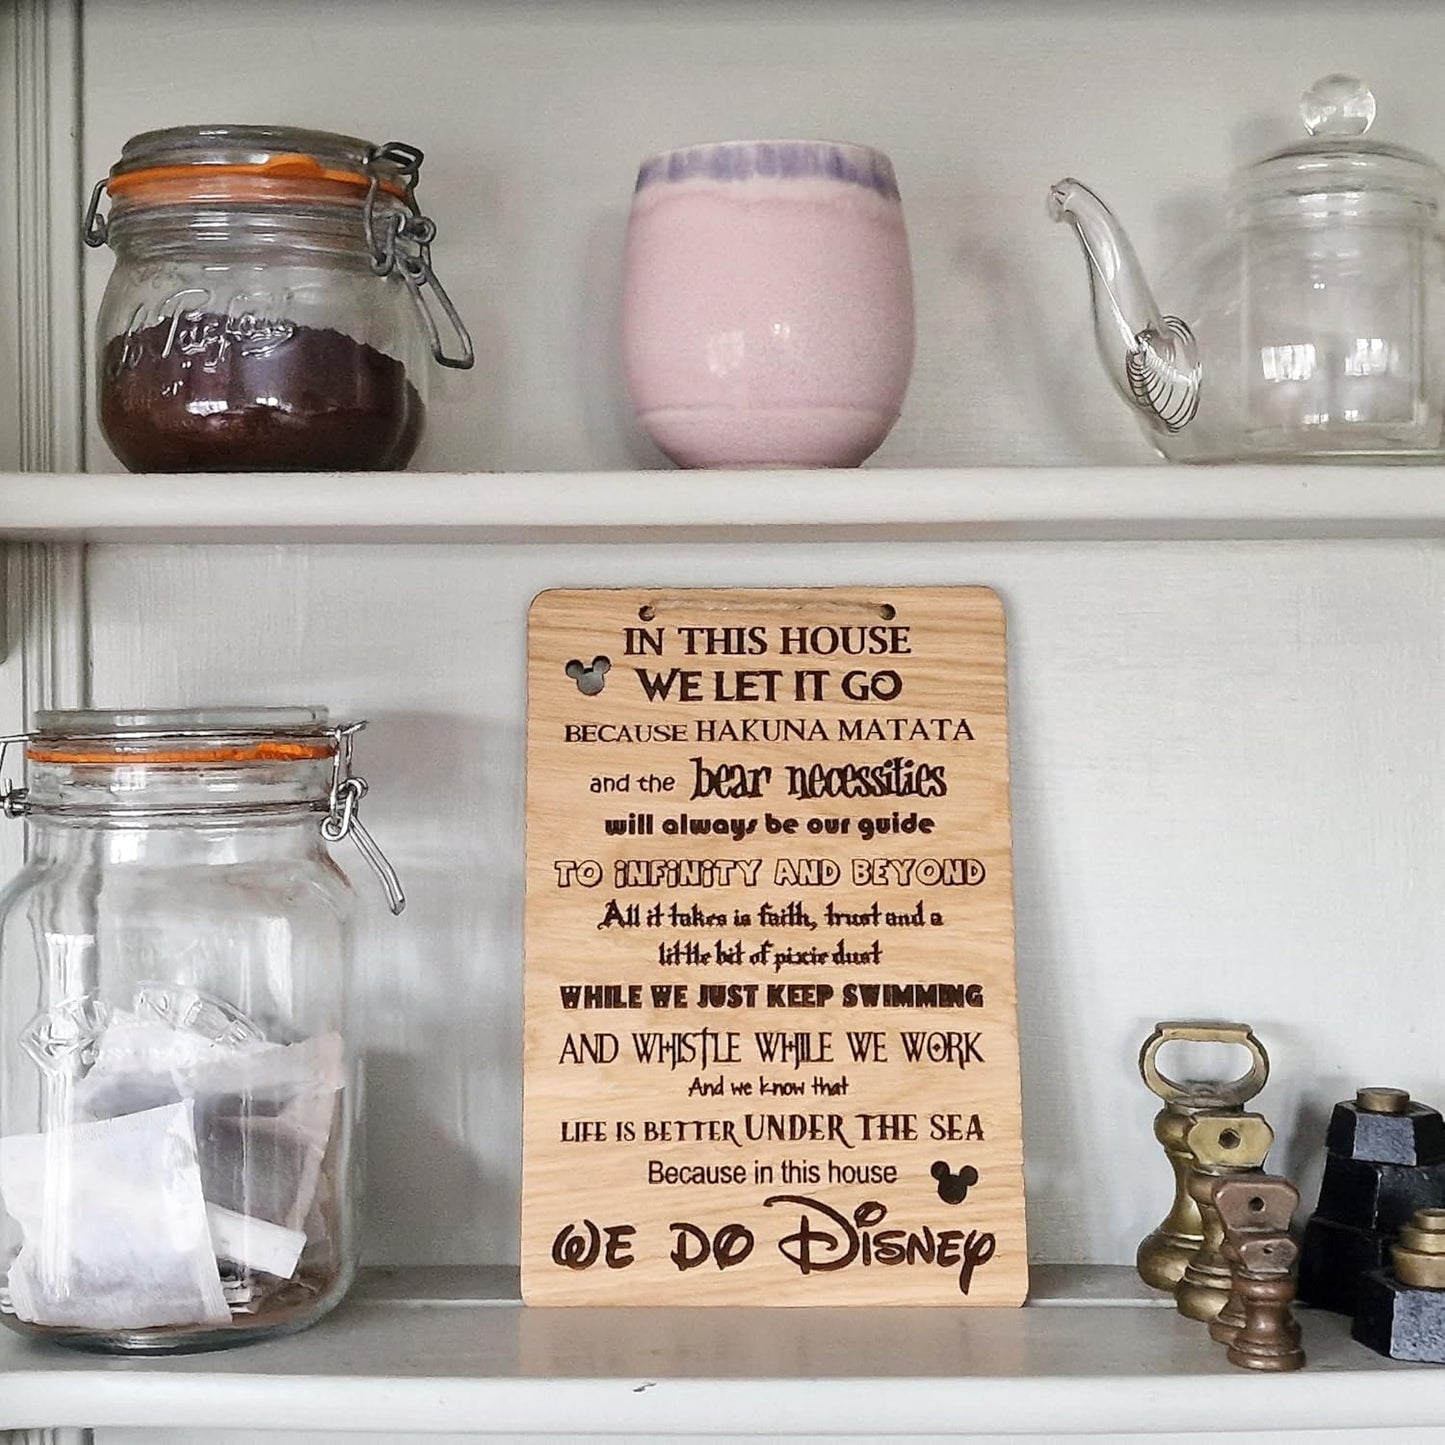 Le Parfait
IN THIS HOUSE
WE LET IT GO
BECAUSE HAKUNA MATATA
and the bear necessities
will always be our guide
TO INFINITY AND BEYOND
All it takes is faith, trust and a
little bit of pixie dust
WHILE WE JUST KEEP SWIMMING
AND WHISTLE WHILE WE WORK
And we know that
LIFE IS BETTER UNDER THE SEA
Because in this house
WE DO DISNEY